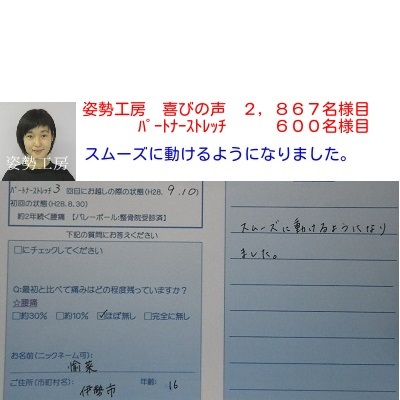 姿勢工房　喜びの声　２，８６７名様目
ﾊﾟｰﾄﾅｰｽﾄﾚｯﾁ　６００名様目
姿勢工房
スムーズに動けるようになりました。
ﾊﾟｰﾄﾅｰｽﾄﾚｯﾁ 3 回目にお越しの際の状態(H28. 9.10)
初回の状態(H28.8.30)
約2年続く腰痛 【バレーボール;整骨院受診済】
下記の質問にお答えください
□にチェックしてください
Q:最初と比べて痛みはどの程度残っていますか?
☆腰痛
□約30% □約10% ☑ほぼ無し □完全に無し
お名前(ニックネーム可):
愉菜
ご住所(市町村名): 年齢: 16
伊勢市
スムーズに動けるようになり
ました。